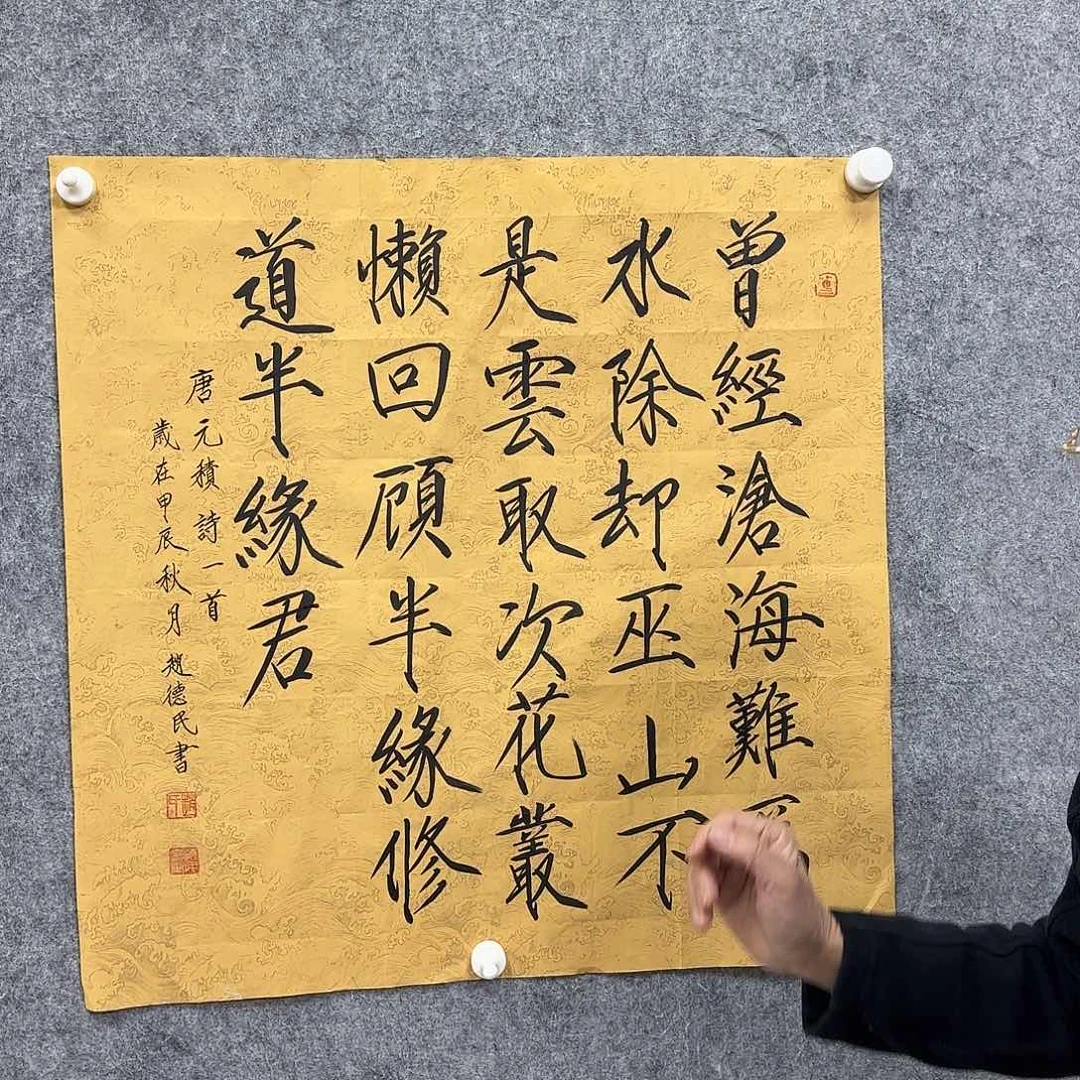 曾經滄海難
水除却巫山不
是雲取次花叢
懶回顧半緣修
道半緣君
唐元積詩一首
歲在甲辰秋月趙德民書